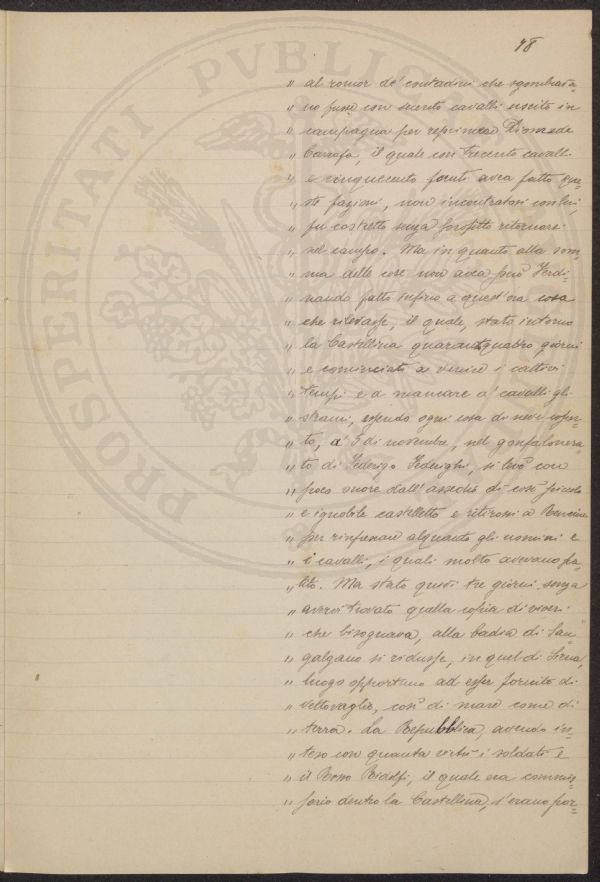 48
PROSPERITATI PVBLICAE
„ al romor de' contadini che sgombrava=
„ no fusse con secento cavalli uscito in
„ campagna per reprimere Diomede
„ Carrafa, il quale con trecento cavalli
„ e cinquecento fanti avea fatto que=
„ ste fazioni, non incontratosi con lui,
„ fu costretto senza profitto ritornarsi
„ nel campo. Ma in quanto alla som=
„ ma delle cose non avea però Ferdi=
„ nando fatto infino a quest'ora cosa
„ che rilevasse, il quale, stato intorno
„ la Castellina quarantaquattro giorni
„ e cominciati a venire i cattivi
„ tempi e a mancare a' cavalli gli
„ strami, essendo ogni cosa di nevi coper=
„ to, a' 5 di novembre, nel gonfalonera=
„ to di Federigo Federighi, si levò con
„ poco onore dall'assedio di così piccolo
„ e ignobile castelletto e ritirossi a
„ per rinfrescare alquanto gli uomini e
„ i cavalli, i quali molto avevano pa=
„ tito. Ma stato quivi tre giorni senza
„ avervi trovato quella copia di viveri
„ che bisognava, alla badia di San
„ galgano si ridusse, in quel di Siena,
„ luogo opportuno ad esser fornito di
„ vettovaglie, così di mare come di
„ terra. La Repubblica, avendo in=
„ teso con quanta virtù i soldati e
„ il Rosso Ridolfi, il quale era commis=
„ sario dentro la Castellina, s'erano por=